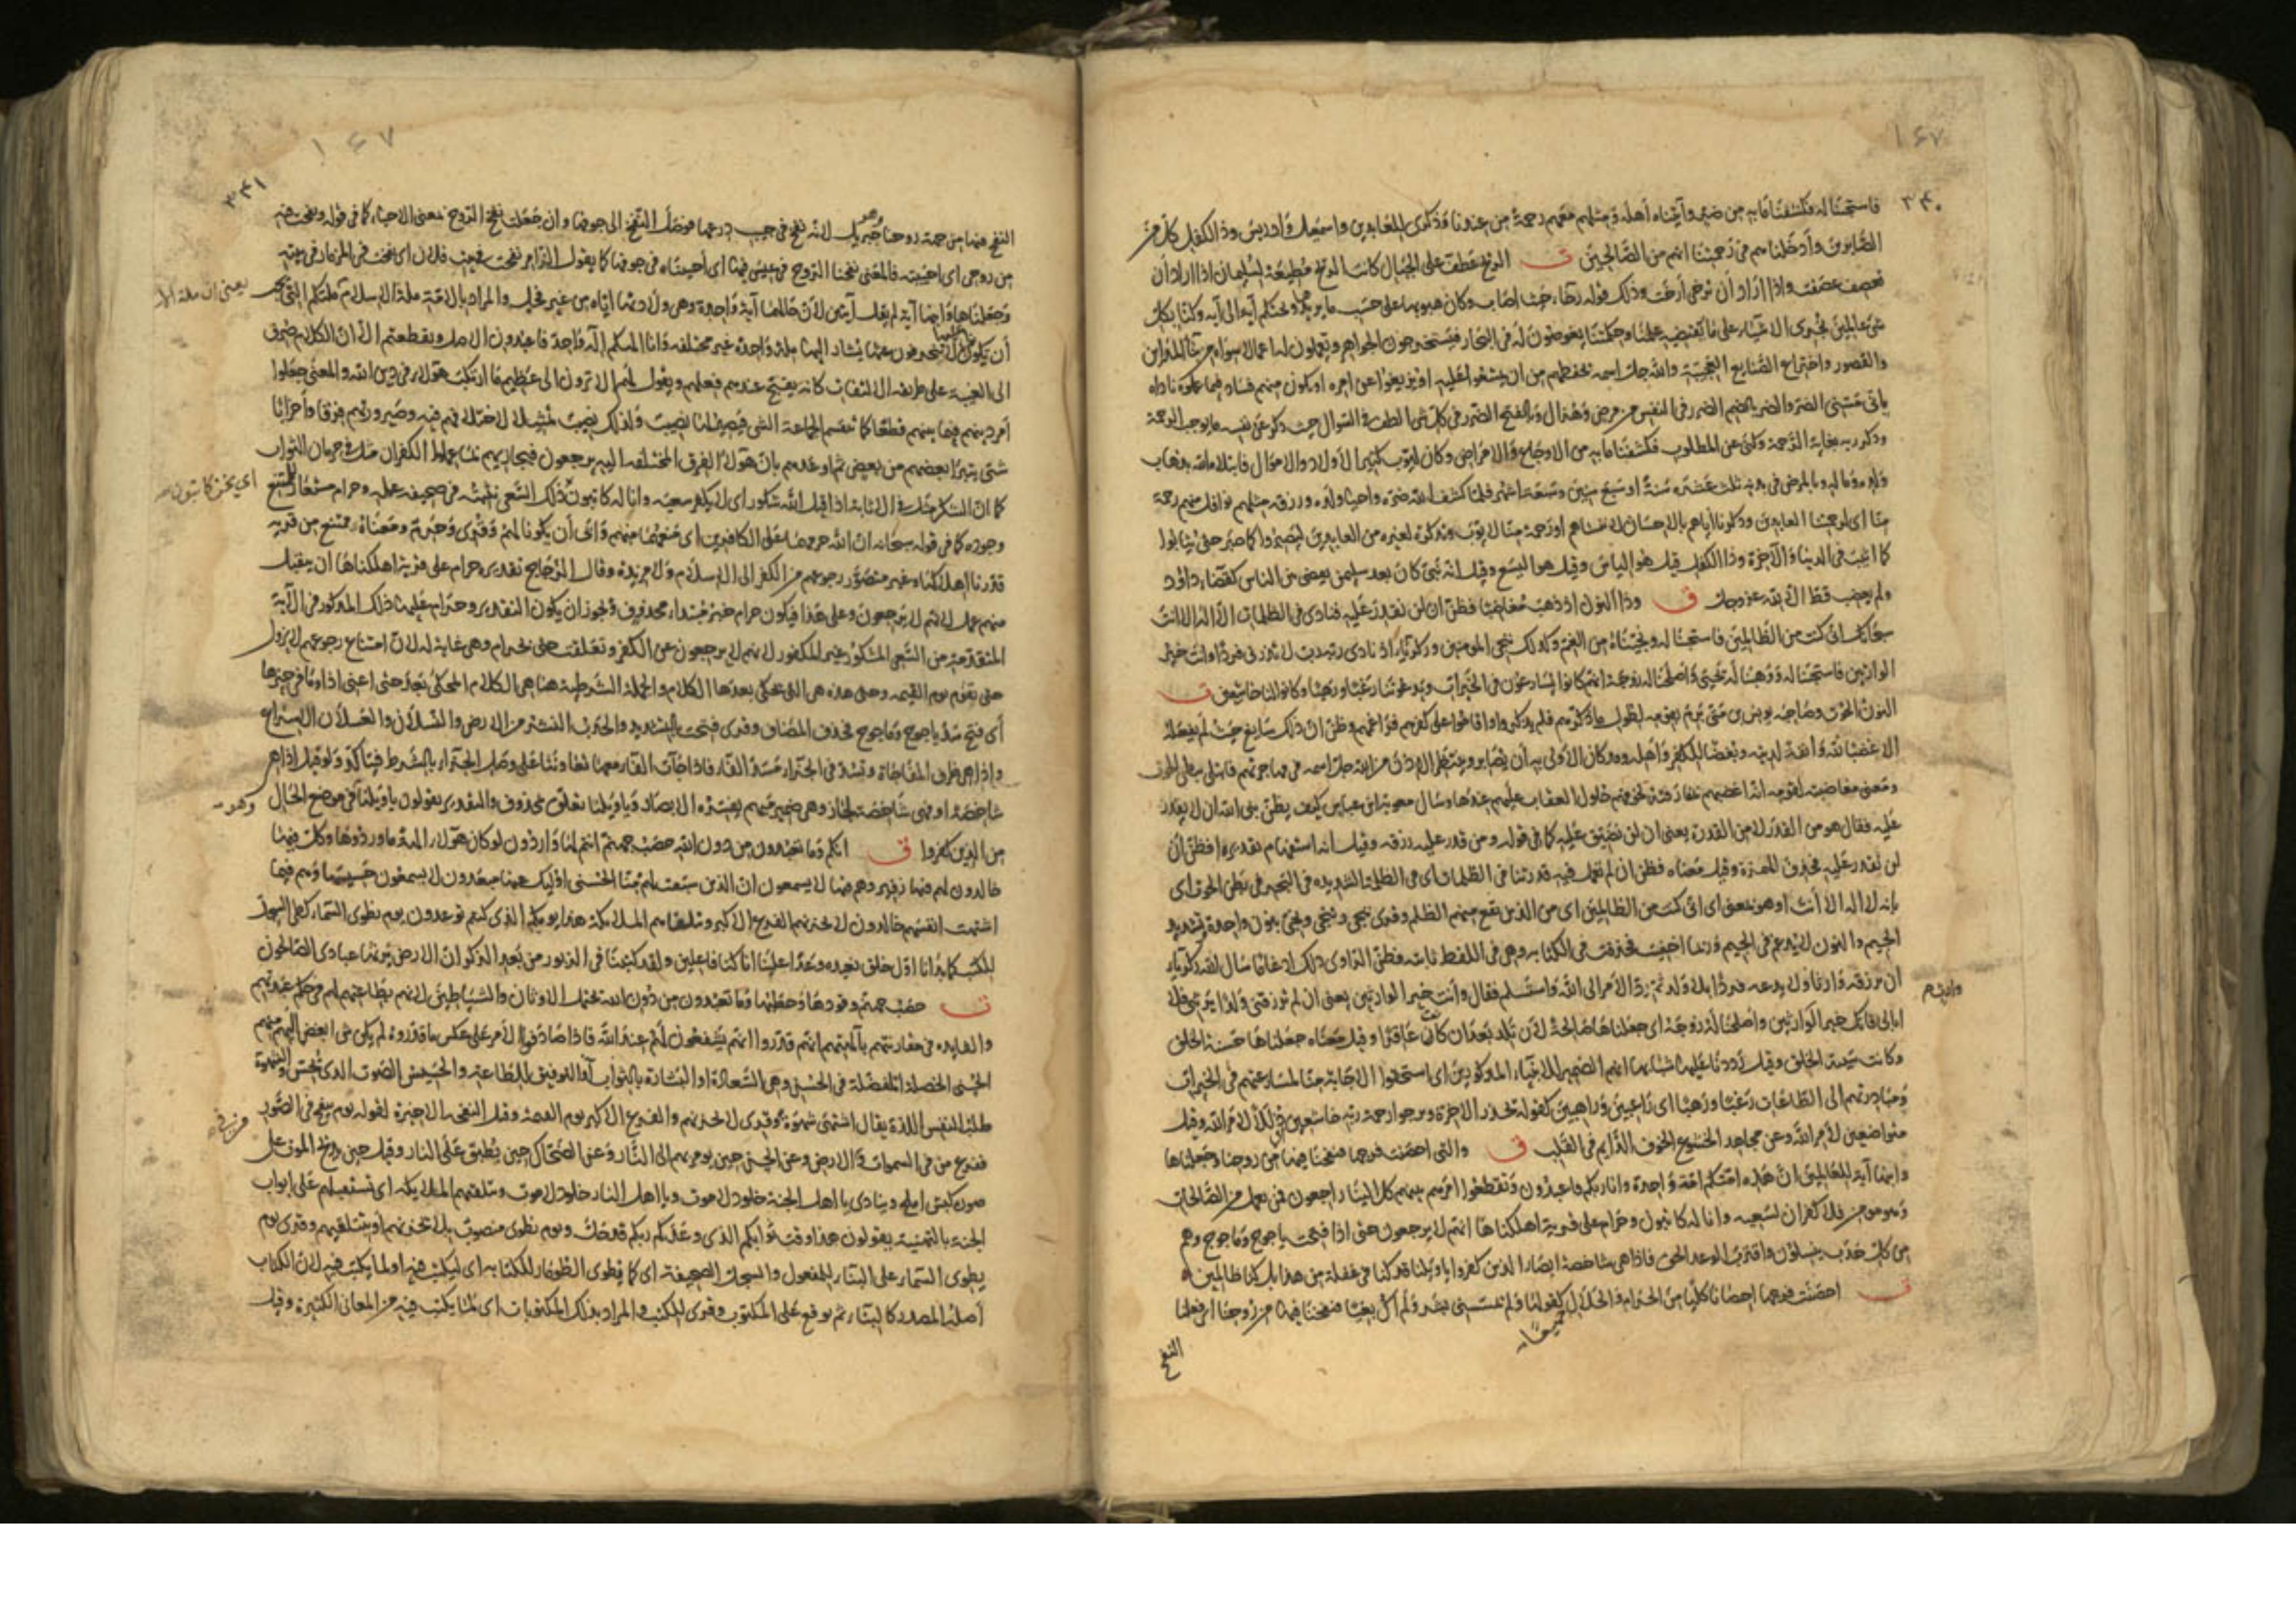 ١٦٧
٣٤٠
فاستجبنا له فكشفنا ما به من ضر وآتيناه أهله ومثلهم معهم رحمة من عندنا وذكرى للعابدين واسمعيل وادريس وذا الكفل كل من
الصابرين وأدخلناهم في رحمتنا انهم من الصالحين ق الريح عطف على الجبال كانت الريح مطيعة لسليمان اذا اراد أن
تعصف عصفت واذا اراد أن ترخى أرخت وذلك قوله رخاء حيث اصاب وكان هبوبها على حسب ما يريد
شئ عالمين نجري الاشياء على ما يقتضيه علمنا وحكمتنا يغوصون له في البحار فيستخرجون الجواهر ويعملون له اعمالا سواه
والقصور واختراع الصنايع العجيبة والله جل اسمه يحفظهم من ان يمتنعوا عليه او يزيغوا عن امره او يكون منهم فساد فيما عملوه ناداه
باني مسني الضر والضر بالضم الضرر في النفس من مرض وهزال وبالفتح الضرر في كل شئ الطف في السوال حيث ذكر عن نفسه ما يوجب الرحمة
وذكر ربه بغاية الرحمة وكنى عن المطلوب فكشفنا ما به من الاوجاع والامراض وكان ايوب كثير الاولاد والاموال فابتلاه الله بذهاب
ولده وماله وبالمرض في بدنه ثلث عشره سنة او سبع سنين وسبعة اشهر فلما كشف الله ضره واحيا ولده ورزقه مثلهم نوافل منهم رحمة
منا اى لرحمتنا العابدين وذكرنا اياهم بالاحسان لا ننساهم او رحمة منا لايوب وتذكرة لغيره من العابدين ليصبروا كما صبر حتى يثابوا
كما اثيب في الدنيا والآخرة وذا الكفل قيل هو الياس وقيل هو اليسع وقيل انه نبي كان بعد سليمن يقضى بين الناس كقضاء داؤد
ولم يغضب قط الا لله عز وجل ق وذا النون اذ ذهب مغاضبا فظن ان لن نقدر عليه فنادى في الظلمات ان لا اله الا انت
سبحانك انى كنت من الظالمين فاستجبنا له ونجيناه من الغم وكذلك ننجي المومنين وزكريا اذ نادى ربه رب لا تذرني فردا وانت خير
الوارثين فاستجبنا له ووهبنا له يحيى وأصلحنا له زوجه انهم كانوا يسارعون في الخيرات ويدعوننا رغبا ورهبا وكانوا لنا خاشعين ق
النون الحوت وصاحبه يونس بن متى برم بقومه لطول ما ذكرهم فلم يذكروا واقاموا على كفرهم فراغمهم وظن ان ذلك سايغ حيث لم يفعله
الا غضبا لله وانفة لدينه وبغضا للكفر وأهله وكان الاولى به أن يصابر وينتظر الاذن من الله جل اسمه في مهاجرتهم فابتلى ببطن الحوت
ومعنى مغاضبته لقومه انه اغضبهم بمفارقته لخوفهم حلول العقاب عليهم عندها وسال معوية ابن عباس كيف يظن نبي الله ان لا يقدر
عليه فقال هو من القدر لا من القدرة يعنى ان لن نضيق عليه كما في قوله ومن قدر عليه رزقه وقيل انه استفهام تقديره افظن أن
لن نقدر عليه فحذف الهمزة وقيل معناه فظن ان لم نعمل فيه قدرتنا في الظلمات اى في الظلمة الشديده في البحر في بطن الحوت اى
بانه لا اله الا أنت او هو بمعنى اى انى كنت من الظالمين اى من الذين يقع منهم الظلم وقرى ننجي وننجى ونجى بنون واحدة وتشديد
الجيم والنون لا يدغم في الجيم وربما اخفيت فحذفت في الكتابه وهى في اللفظ ثابته فظن الراوى ذلك ادغاما سال الله زكرياء
ان يرزقه وارثا ولا يدعه فردا بلا ولد ثم رد الامر الى الله واستسلم فقال وأنت خير الوارثين يعنى ان لم ترزقنى ولدا يرثنى فلا
ابالى فانك خير الوارثين وأصلحنا له زوجه اى جعلناها صالحة لأن تلد بعد أن كانت عاقرا وقيل معناه جعلناها حسنة الخلق
وكانت سيئة الخلق وقيل رددنا عليها شبابها انهم الضمير للانبياء المذكورين اى استحقوا الاجابة منا لمسارعتهم في الخيرات
ومبادرتهم الى الطاعات رغبا ورهبا اى راغبين وراهبين كقوله تحذر الاخرة ويرجوا رحمة ربه خاشعين لامر الله وقيل
متواضعين لأمر الله وعن مجاهد الخشوع الخوف الدايم في القلب ق والتى احصنت فرجها فنفخنا فيها من روحنا وجعلناها
وابنها آية للعالمين ان هذه امتكم امة واحدة وانا ربكم فاعبدون وتقطعوا امرهم بينهم كل الينا راجعون فمن يعمل من الصالحات
وهو مومن فلا كفران لسعيه وانا له كاتبون وحرام على قرية اهلكناها انهم لا يرجعون حتى اذا فتحت ياجوج وماجوج وهم
من كل حدب ينسلون واقترب الوعد الحق فاذا هى شاخصة ابصار الذين كفروا ياويلنا قد كنا في غفلة من هذا بل كنا ظالمين
ق احصنت فرجها احصانا كليا من الحرام والحلال كقولها ولم يمسسنى بشر ولم أك بغيا فنفخنا فيها من روحنا
النفخ
١٦٧
٣٤١
النفخ فيها من جهة روحنا جبريل لانه نفخ في جيب درعها فوصل النفخ الى جوفها وان جعلت نفخ الروح بمعنى الاحياء كما في قوله ونفخت فيه
من روحى اى احييته فالمعنى نفخنا الروح في عيسى فيها اى احييناه في جوفها كما يقول الزامر نفخت في بيت فلان اى نفخت في المزمار في بيته
وجعلناها وابنها آية لم يقل آيتين لأن حالهما آية واحدة وهى ولادتها اياه من غير فحل والمراد بالامة ملة الاسلام ملتكم التى يجب
أن تكونوا عليها لا تنحرفون عنها يشار اليها ملة واحدة غير مختلفه وانا الهكم اله واحد فاعبدون الاصل وتقطعتم الا ان الكلام صرف
الى الغيبة على طريقة الالتفات كانه يقبح عندهم فعلهم ويقول لهم الا ترون الى عظيم ما ارتكب هؤلاء في دين الله والمعنى جعلوا
أمر دينهم فيما بينهم قطعا كما تقسم الجماعة الشى فيصير لهذا نصيب ولذلك نصيب تمثيلا لاختلافهم فيه وصيرورتهم فرقا وأحزابا
شتى يتبرأ بعضهم من بعض ثم اوعدهم بان هؤلاء الفرق المختلفه اليه يرجعون فيجازيهم الكفران مثل في حرمان الثواب
كما ان الشكر مثل في الاثابة اذا قيل الله شكور اى لا يكفر سعيه وانا له كاتبون ذلك السعى نثبته في صحيفة عمله وحرام مستعار للممتنع
وجوده كما في قوله سبحانه ان الله حرمهما على الكافرين اى منعهما منهم وابى أن يكونا لهم وقرى وحرم ومعناه ممتنع من قرية
قدرنا اهلاكها وغير متصور رجوعهم من الكفر الى الاسلام ولا مزيدة وقال الزجاج تقديره حرام على قرية اهلكناها ان يتقبل
منهم عمل لانهم لا يرجعون وعلى هذا فيكون حرام خبر مبتداء محذوف ويجوز ان يكون التقدير وحرام عليها ذلك المذكور في الآية
المتقدمة من السعى المشكور غير المكفور لانهم لا يرجعون عن الكفر وتعلقت حتى بحرام وهى غاية له لان امتناع رجوعهم لا يزول
حتى تقوم يوم القيمه وحتى هذه هى التى يحكى بعدها الكلام والجملة الشرطية هنا هى الكلام المحكى بعد حتى اعنى اذا وما في حيزها
أى فتح سد ياجوج وماجوج فحذف المضاف وقرى فتحت بالتشديد والحدب النشز من الارض والنسلان والعسلان الاسراع
واذا هى ظرف المفاجاة وتسد في الجزاء مسد الفاء فاذا جاءت الفاء معها تعاونتا على وصل الجزاء بالشرط فيتاكد ولو قيل اذا هى
شاخصة او فهى شاخصة لجاز وهى ضمير مبهم يفسره الابصار وياويلنا تعلق بمحذوف والتقدير يقولون ياويلنا في موضع الحال
من الذين كفروا ق انكم وما تعبدون من دون الله حصب جهنم انتم لها واردون لو كان هؤلاء الهة ما وردوها وكل فيها
خالدون لهم فيها زفير وهم فيها لا يسمعون ان الذين سبقت لهم منا الحسنى اولئك عنها مبعدون لا يسمعون حسيسها وهم فيما
اشتهت انفسهم خالدون لا يحزنهم الفزع الاكبر وتتلقاهم الملائكة هذا يومكم الذى كنتم توعدون يوم نطوى السماء كطى السجل
للكتب كما بدانا اول خلق نعيده وعدا علينا انا كنا فاعلين ولقد كتبنا في الزبور من بعد الذكر ان الارض يرثها عبادى الصالحون
ق حصب جهنم وقودها وحطبها وما تعبدون من دون الله يحتمل الاوثان والشياطين لانهم بطاعتهم لهم في حكم عبدتهم
والفايده في مقارنتهم بآلهتهم انهم قدروا انهم يشفعون لهم عند الله فاذا صادفوا الامر على عكس ما قدروه لم يكن شى ابغض اليهم منهم
الحسنى الخصلة المفضلة في الحسن وهى السعادة او البشارة بالثواب أو التوفيق للطاعة والحسيس الصوت الذى يحس والشهوة
طلب النفس اللذة يقال اشتهى شهوة وقرى لا يحزنهم والفزع الاكبر يوم القيمة وقيل النفخه الاخيرة لقوله يوم ينفخ في الصور
ففزع من في السموات والارض وعن الحسن حين يومر بهم الى النار وعن الضحاك حين يطبق على النار وقيل حين يذبح الموت على
صورة كبش املح وينادى يا اهل الجنة خلود لا موت ويا اهل النار خلود لا موت وتتلقيهم الملائكة اى تستقبلهم على ابواب
الجنة بالتهنية يقولون هذا وقت ثوابكم الذى وعدكم ربكم قد حل ويوم نطوى منصوب بلا يحزنهم او بتتلقيهم وقرى يوم
يطوى السماء على البناء للمفعول والسجل الصحيفة اى كما يطوى الطومار للكتابه اى ليكتب فيه او لما يكتب فيه لان الكتاب
أصله المصدر كالبناء ثم يوقع على المكتوب وقرى للكتب والمراد بذلك المكتوبات اى لما يكتب فيه من المعانى الكثيرة وقيل